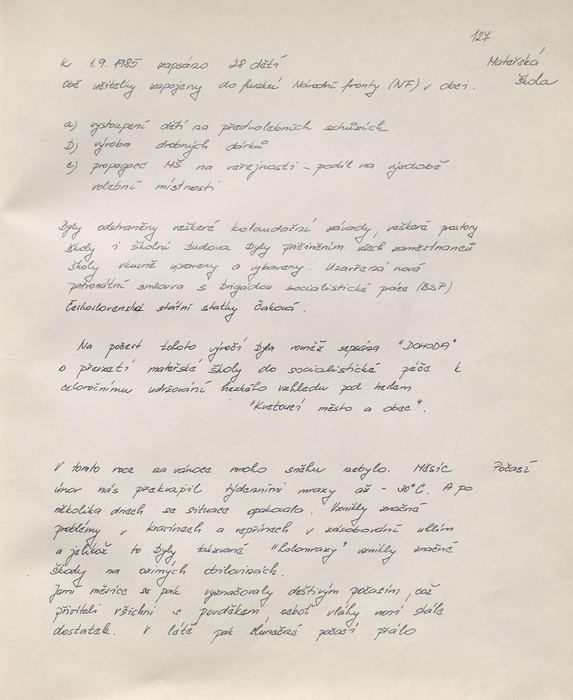 127
K 1.9.1985 zapsáno 28 dětí
Mateřská
škola
Obě učitelky zapojeny do funkcí Národní fronty (NF) v obci.
a) vystoupení dětí na předvolebních schůzích
b) výroba drobných dárků
c) propagace MŠ na veřejnosti – podíl na výzdobě
volební místnosti
Byly odstraněny veškeré kolaudační závady, veškeré prostory
školy i školní budova byly přičiněním všech zaměstnanců
školy vkusně upraveny a vybaveny. Uzavřená nová
patronátní smlouva s brigádou socialistické práce (BSP)
Československé státní statky Čakova.
Na počest tohoto výročí byla rovněž sepsána "DOHODA"
o převzetí mateřské školy do socialistické péče k
celoročnímu udržování hezkého vzhledu pod heslem
"Kvetoucí město a obec".
V tomto roce na vánoce mnoho sněhu nebylo. Měsíc
Počasí
únor nás překvapil týdenními mrazy až - 30°C. A po
několika dnech se situace opakovala. Vznikly značné
problémy v kravínech a vepřínech v zásobování uhlím
a jelikož to byly takzvané "holomrazy" vznikly značné
škody na ozimých obilovinách.
Jarní měsíce se pak vyznačovaly deštivým počasím, což
přivítali všichni s povděkem neboť vláhy není stále
dostatek. V létě pak slunečné počasí přálo